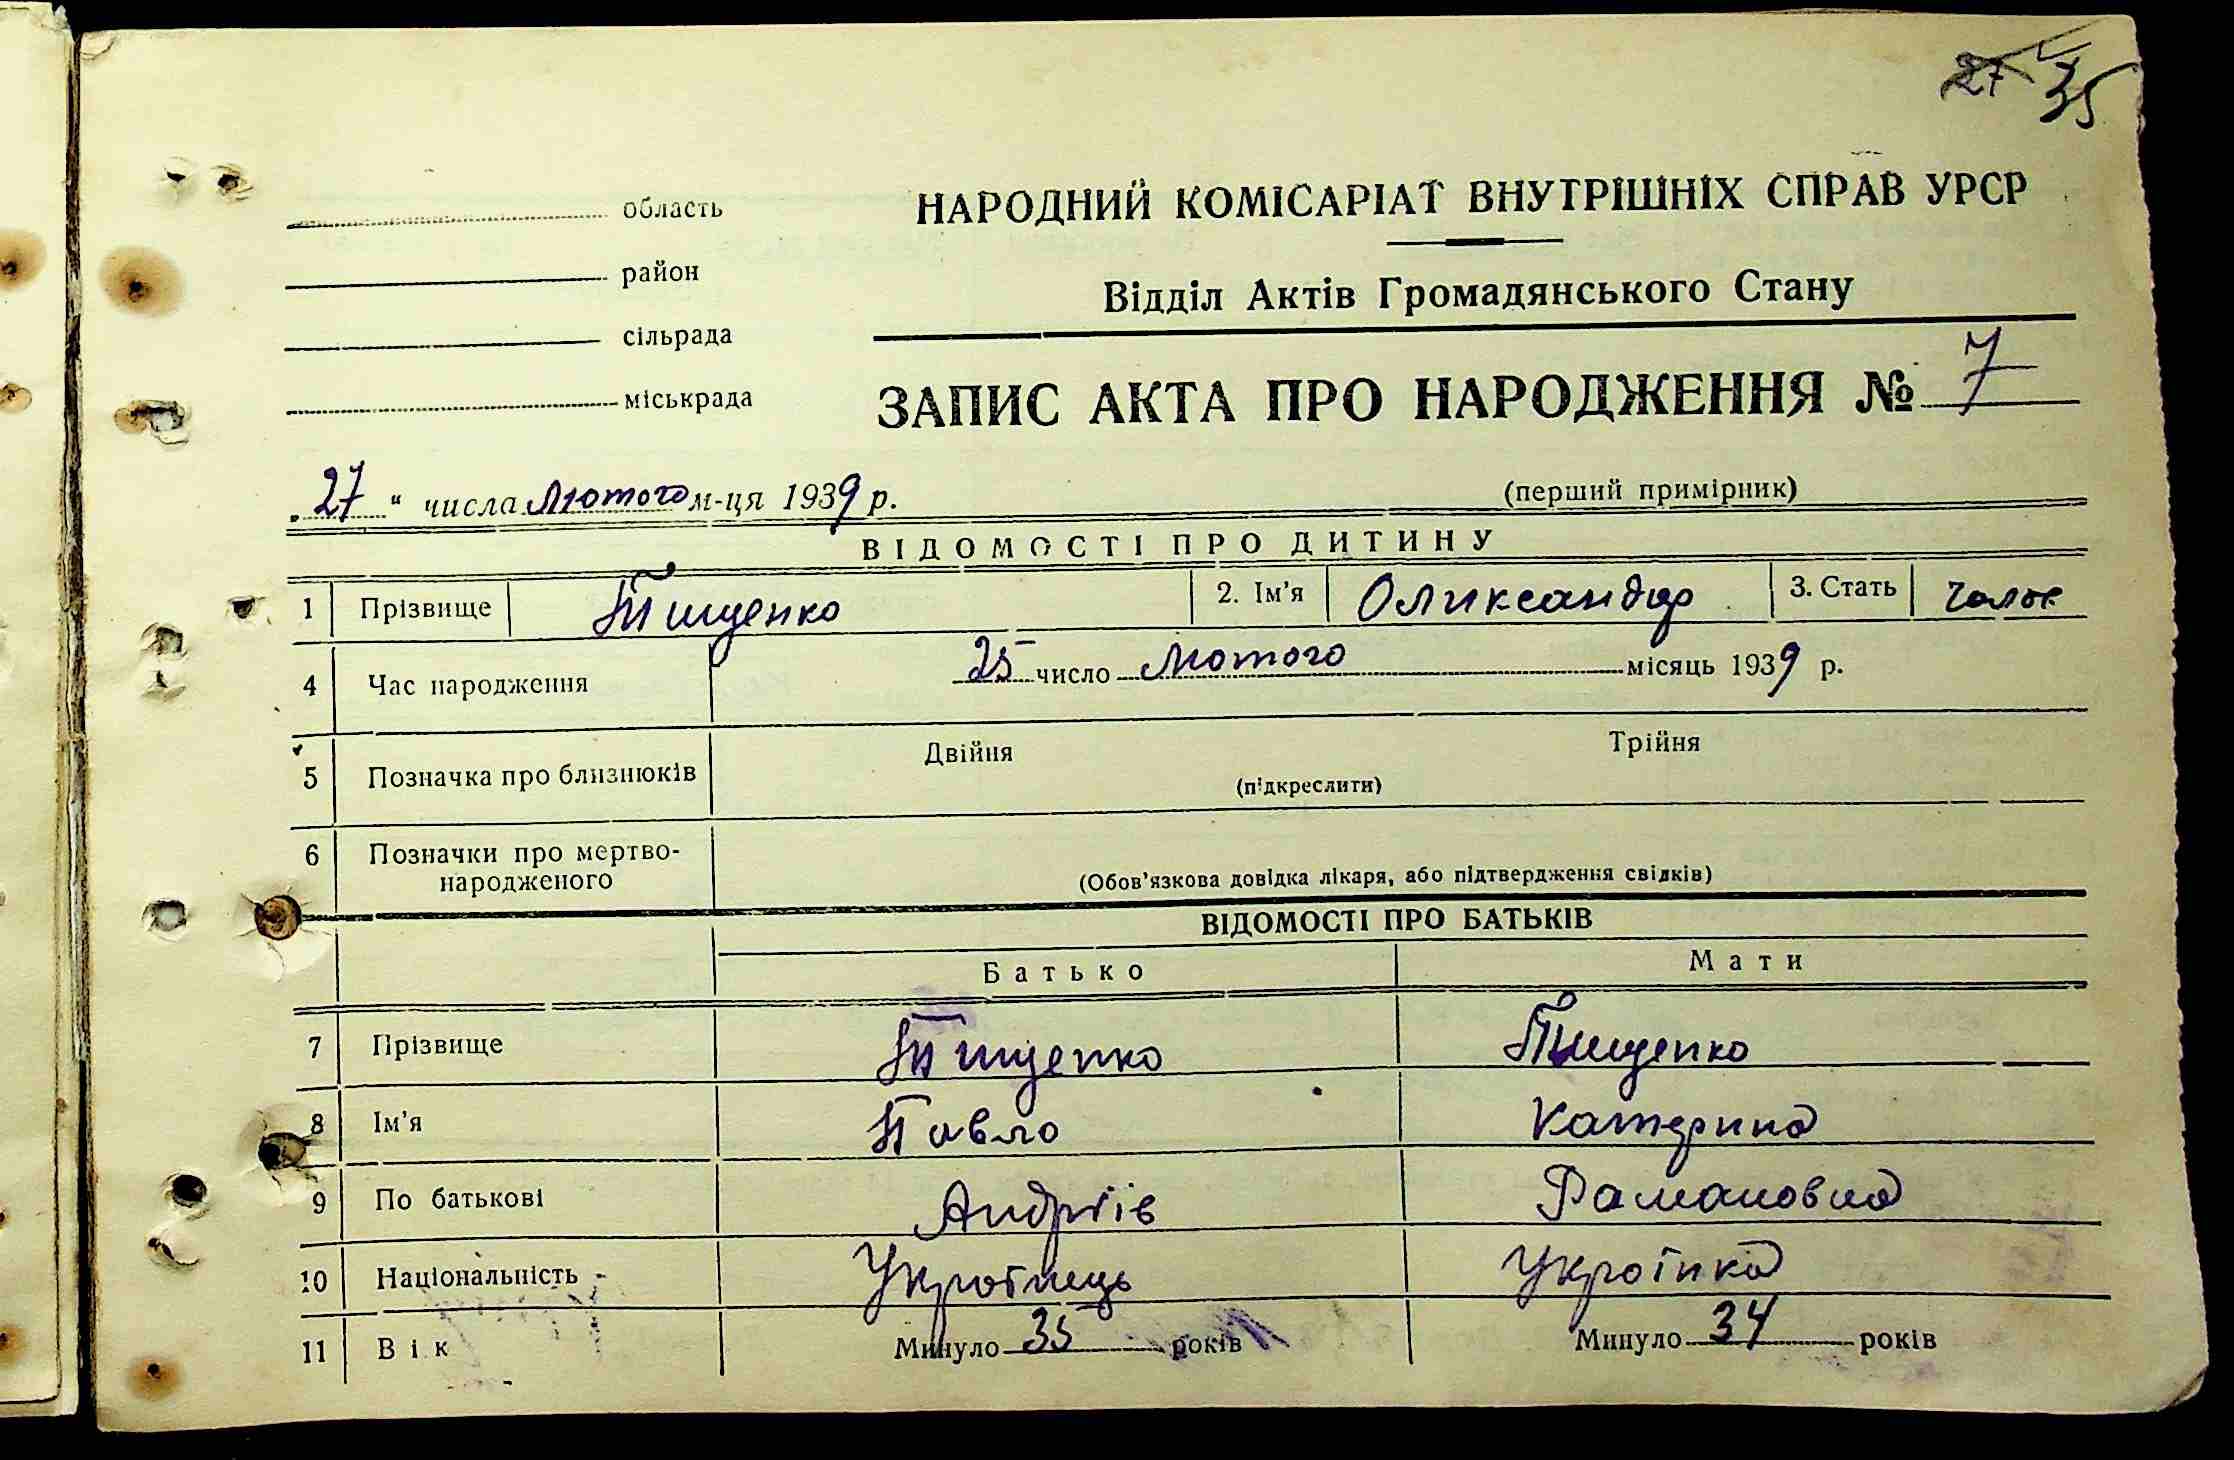 27 35
НАРОДНИЙ КОМІСАРІАТ ВНУТРІШНІХ СПРАВ УРСР
область
район
сільрада
міськрада
Відділ Актів Громадянського Стану
ЗАПИС АКТА ПРО НАРОДЖЕННЯ № 7
„27“ числа Лютого м-ця 1939 р.
(перший примірник)
ВІДОМОСТІ ПРО ДИТИНУ
1 Прізвище Тищенко 2. Ім'я Олександр 3. Стать чолов
4 Час народження 25 число Лютого місяць 1939 р.
5 Позначка про близнюків Двійня Трійня
(підкреслити)
6 Позначки про мертво-
народженого
(Обов'язкова довідка лікаря, або підтвердження свідків)
ВІДОМОСТІ ПРО БАТЬКІВ
Батько Мати
7 Прізвище Тищенко Тищенко
8 Ім'я Павло Катерина
9 По батькові Андріїв Рамановна
10 Національність Українець Українка
11 Вік Минуло 35 років Минуло 34 років